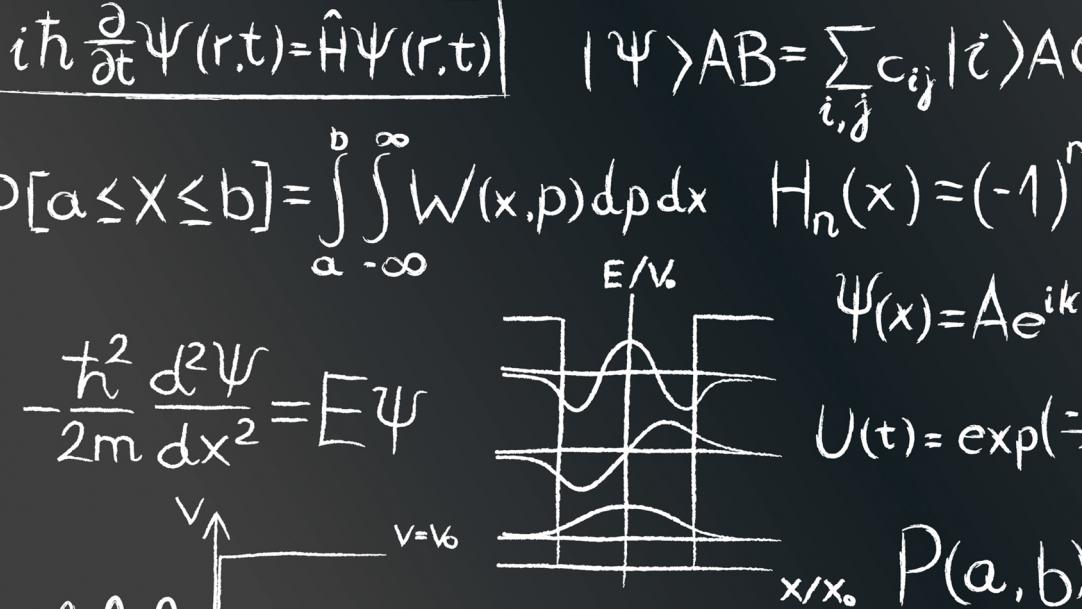 iħ ∂/∂t Ψ(r,t)=ĤΨ(r,t)
|Ψ⟩AB=∑i,j cij|i⟩A
[a≤X≤b]=∫ab∫-∞∞W(x,p)dpdx
Hn(x)=(-1)n
E/V₀
Ψ(x)=Aeik
-ħ²/2m d²Ψ/dx²=EΨ
U(t)=exp(
V
V=V₀
X/X₀
P(a,b)